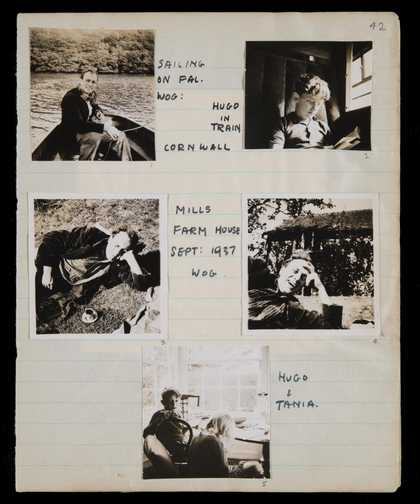 42
SAILING
ON FAL.
WOG:
HUGO
IN
TRAIN
CORNWALL
1
2
MILLS
FARM HOUSE
SEPT: 1937
WOG.
3
4
HUGO
&
TANIA.
5